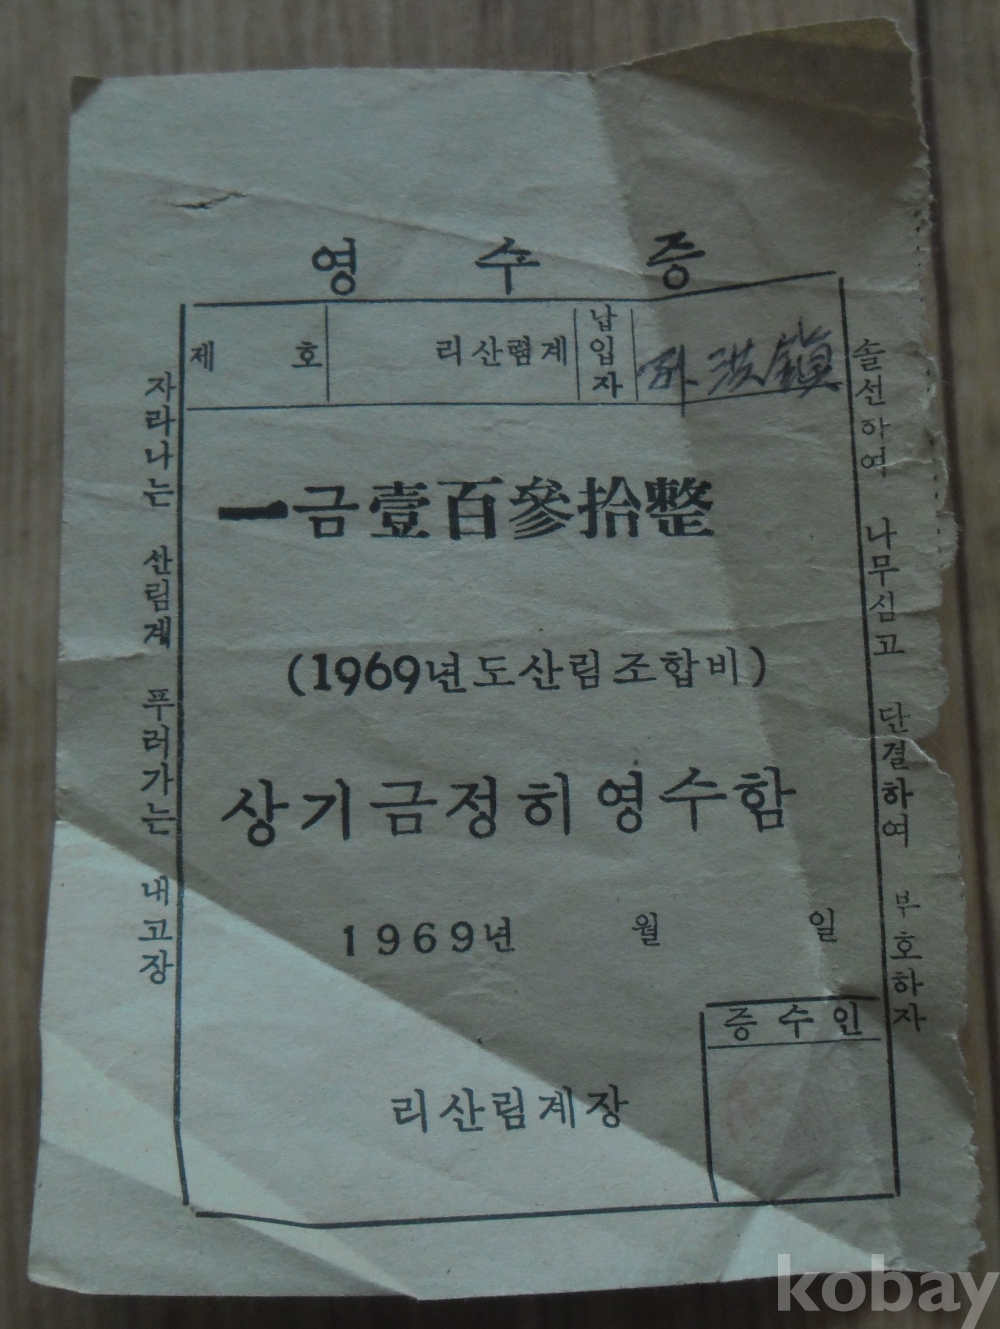 영 수 증
제 호 리산림계 납입자 孫洪鎭
一금壹百參拾整
(1969년도산림조합비)
상기금정히영수함
1969년 월 일
증수인
리산림계장
자라나는 산림계 푸러가는 내고장
솔선하여 나무심고 단결하여 부호하자
kobay